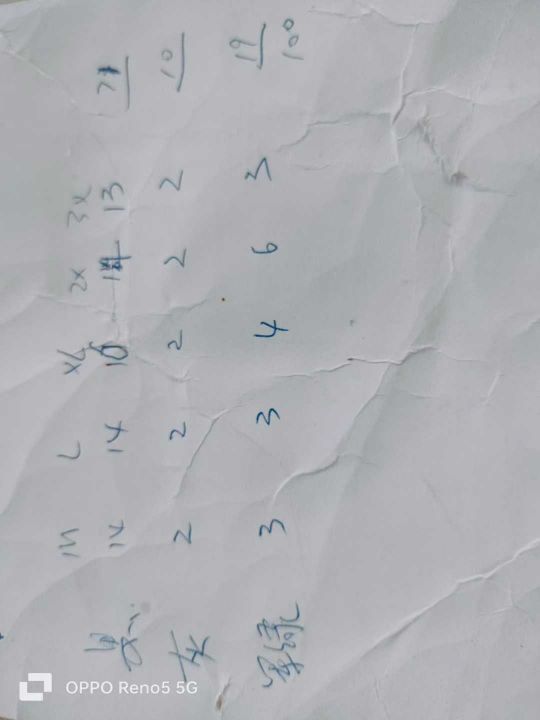 M L XL 2X 3X
黑 14 14 14 13 71
灰 2 2 2 2 2 10
3 3 4 6 3 19
100
OPPO Reno5 5G